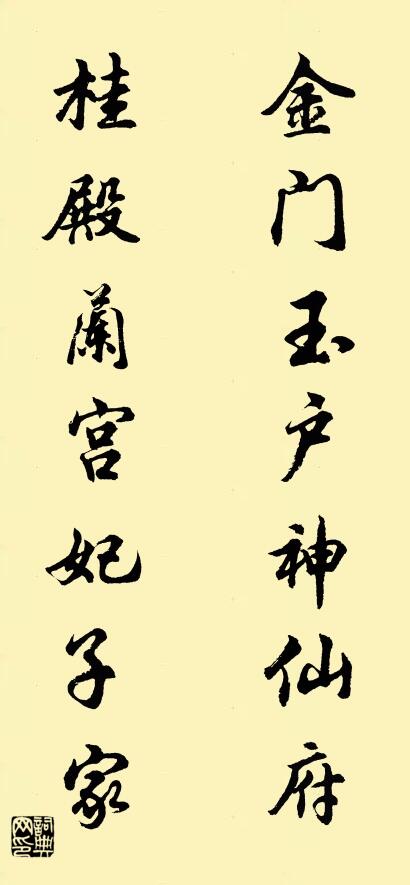 金门玉户神仙府
桂殿蘭宫妃子家
詞典网印